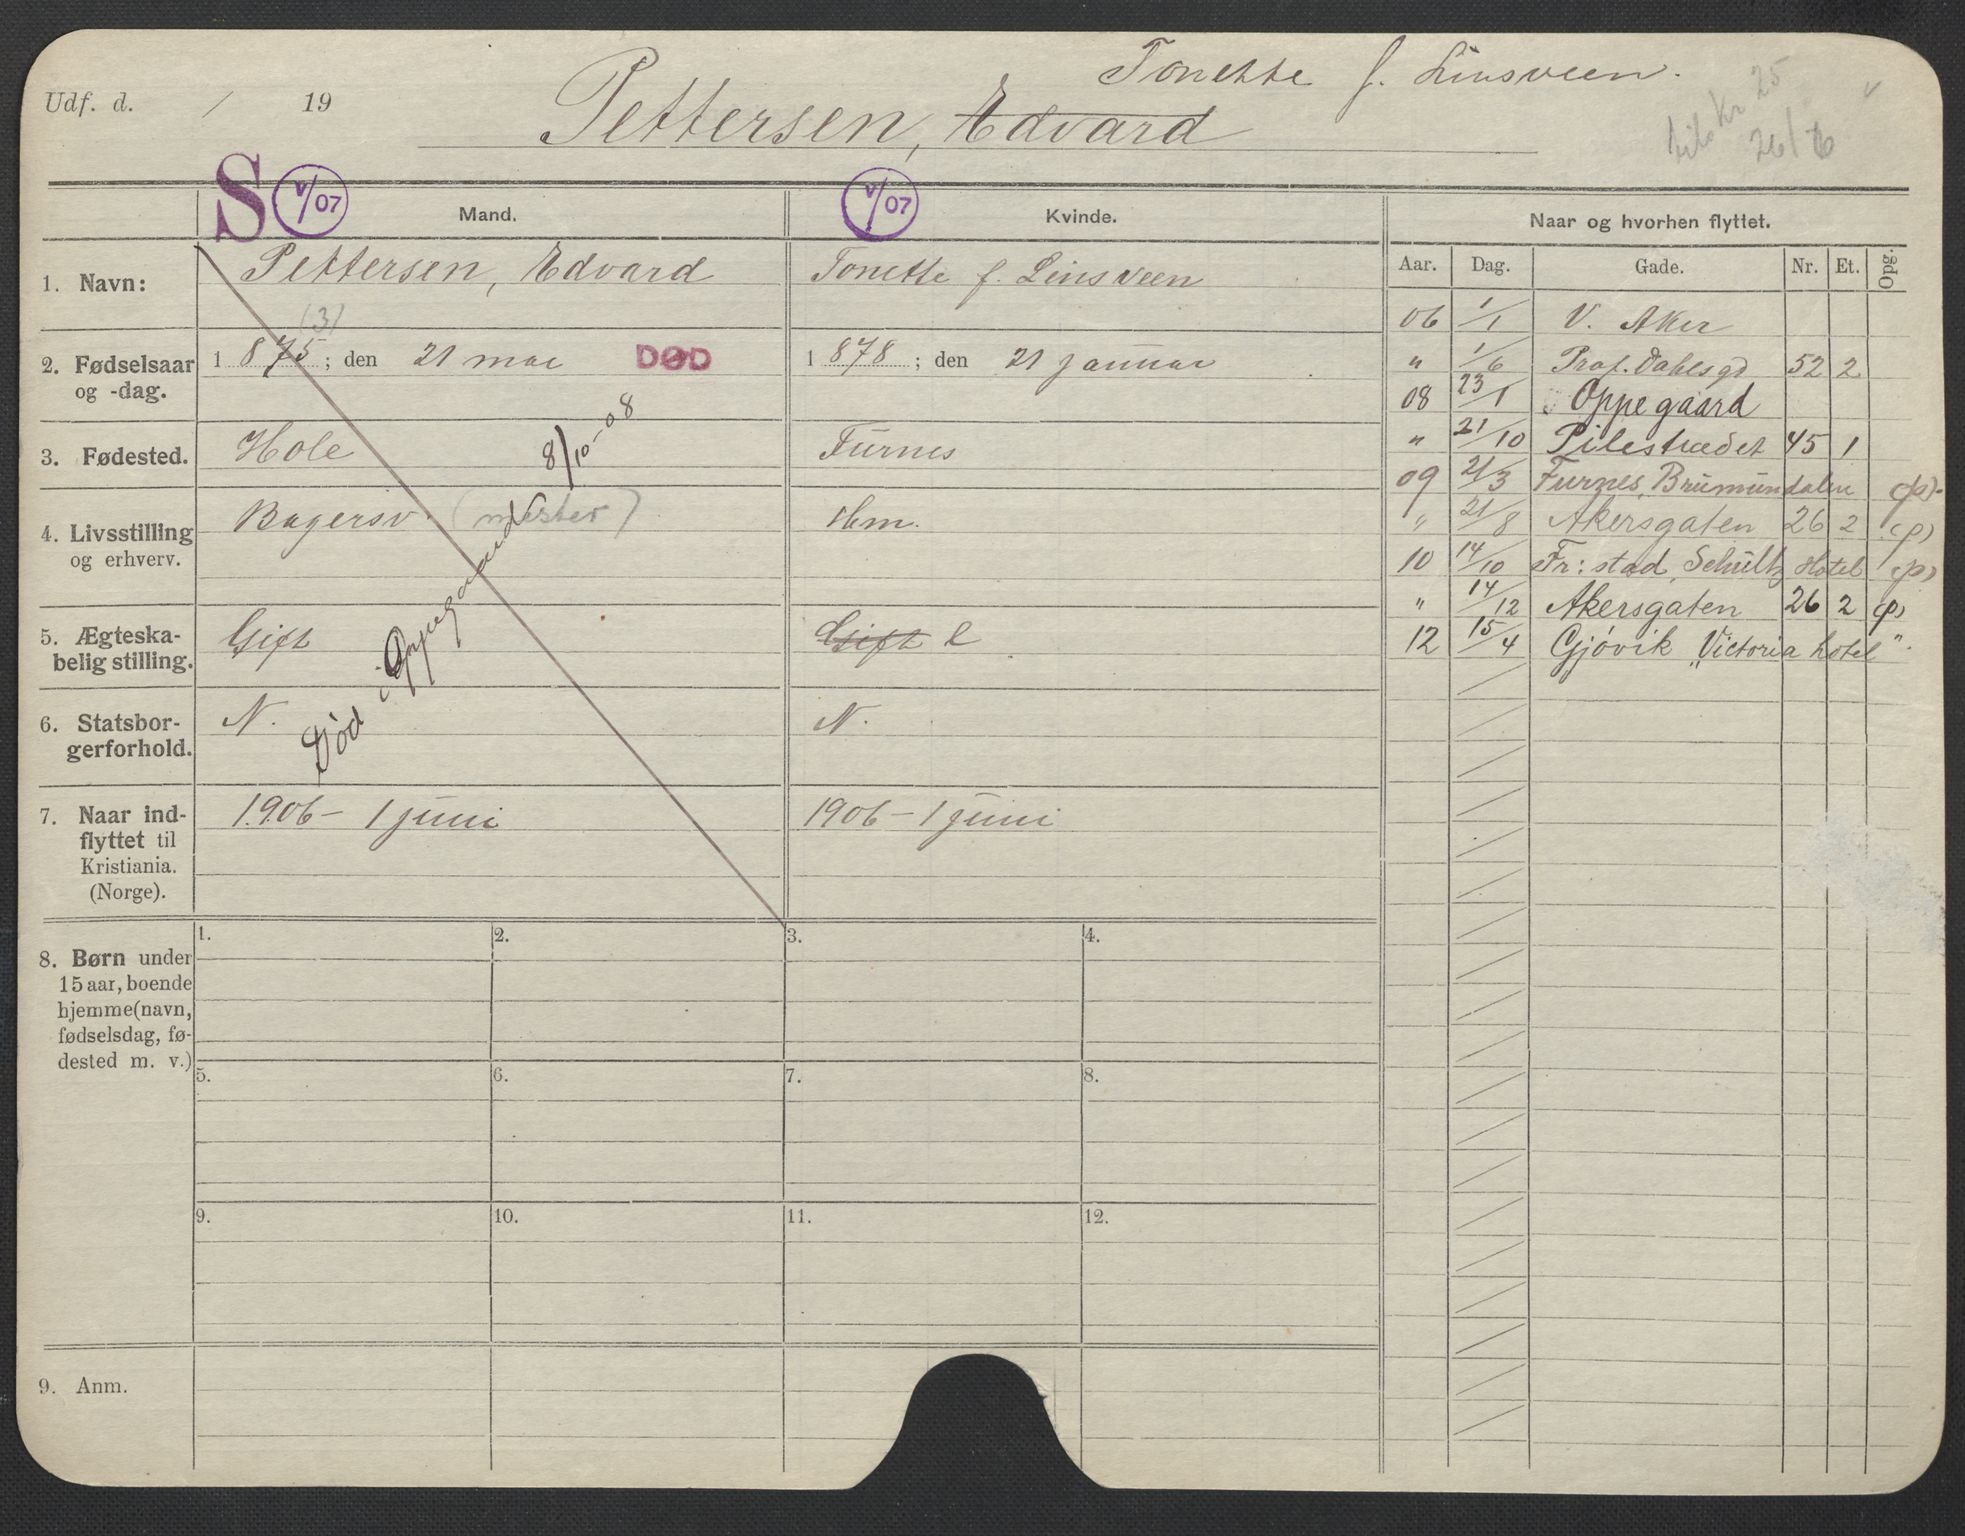 Tonette f. Linsveen.
Udf. d. / 19
Pettersen, Edvard
Kr 25
26/6
S
v/07
Mand.
v/07
Kvinde.
Naar og hvorhen flyttet.
Aar. Dag. Gade. Nr. Et. Opg.
1. Navn:
Pettersen, Edvard
Tonette f. Linsveen
2. Fødselsaar
og -dag.
(3)
1875; den 21 mai
DØD
1878; den 21 januar
3. Fødested.
Hole
Furnes
4. Livsstilling
og erhverv.
Bagersv. (mester)
Hm.
5. Ægteska-
belig stilling.
Gift
Gift e
6. Statsbor-
gerforhold.
N.
N.
Død i Oppegaard 8/10-08
7. Naar ind-
flyttet til
Kristiania.
(Norge).
1906 - 1 juni
1906 - 1 juni
06 1/1 V. Aker
" 1/6 Prof. Dahlsgd 52 2
08 23/1 Oppegaard
" 21/10 Pilestrædet 45 1
09 21/3 Furnes, Brumundalen (p).
" 21/8 Akersgaten 26 2 (p)
10 14/10 Fr:stad, Schultz Hotel (p)
" 14/12 Akersgaten 26 2 (p)
12 15/4 Gjøvik "Victoria hotel".
8. Børn under
15 aar, boende
hjemme (navn,
fødselsdag, fø-
dested m. v.)
1. 2. 3. 4.
5. 6. 7. 8.
9. 10. 11. 12.
9. Anm.